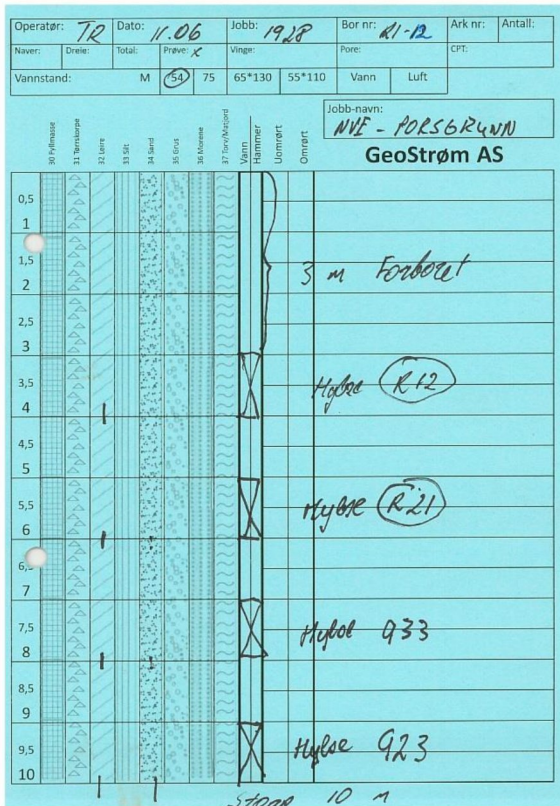 Operatør: TR Dato: 11.06 Jobb: 1928 Bor nr: R1-12 Ark nr: Antall:
Naver: Dreie: Total: Prøve: X Vinge: Pore: CPT:
Vannstand: M 54 75 65*130 55*110 Vann Luft
Jobb-navn:
NVE - PORSGRUNN
GeoStrøm AS
30 Fyllmasse 31 Tørrskorpe 32 Leire 33 Silt 34 Sand 35 Grus 36 Morene 37 Torv/Matjord Vann Hammer Uomrørt Omrørt
0,5
1
1,5
2
3 m Forboret
2,5
3
3,5
Hylse R12
4
4,5
5
5,5
Hylse R21
6
6,5
7
7,5
Hylse 933
8
8,5
9
9,5
Hylse 923
10
Stopp 10 m